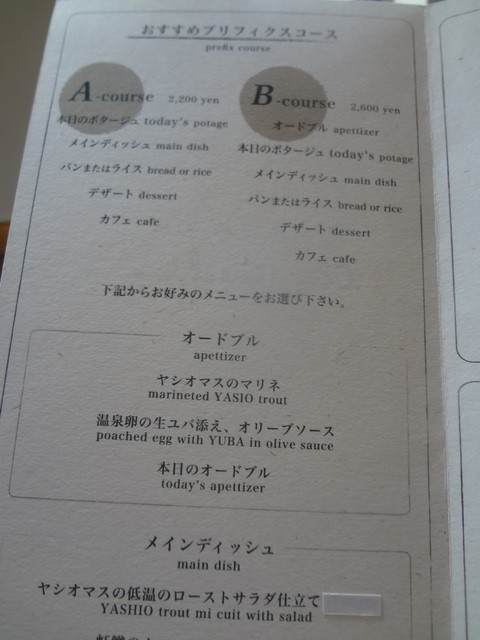 おすすめプリフィクスコース
prefix course
A-course 2,200 yen
本日のポタージュ today's potage
メインディッシュ main dish
パンまたはライス bread or rice
デザート dessert
カフェ cafe
B-course 2,600 yen
オードブル apettizer
本日のポタージュ today's potage
メインディッシュ main dish
パンまたはライス bread or rice
デザート dessert
カフェ cafe
下記からお好みのメニューをお選び下さい。
オードブル
apettizer
ヤシオマスのマリネ
marineted YASIO trout
温泉卵の生ユバ添え、オリーブソース
poached egg with YUBA in olive sauce
本日のオードブル
today's apettizer
メインディッシュ
main dish
ヤシオマスの低温のローストサラダ仕立て
YASHIO trout mi cuit with salad